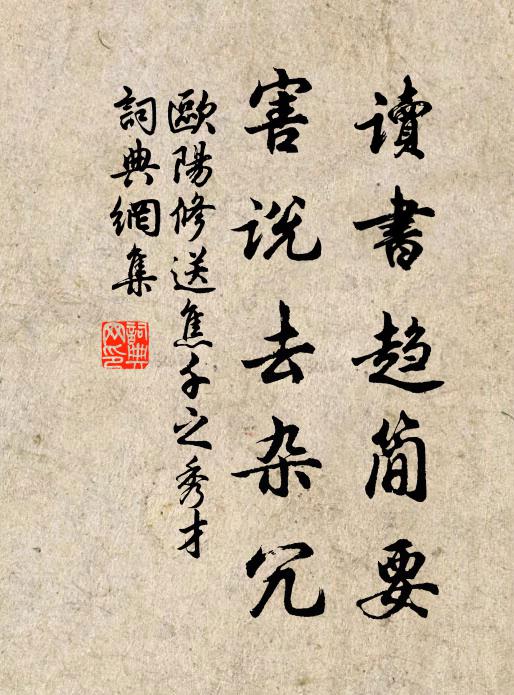 讀書趋簡要
害说去杂冗
歐陽修送焦千之秀才
詞典網集
詞典网印